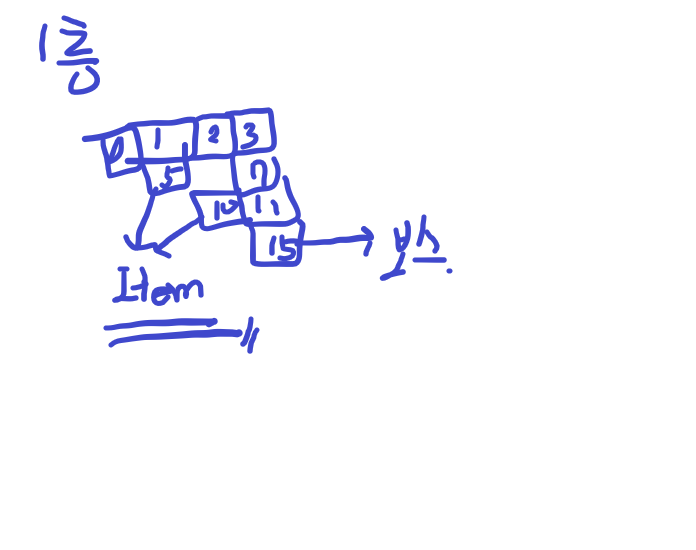 1 2
0
0 1 2 3
5 7
10 11
15
Item